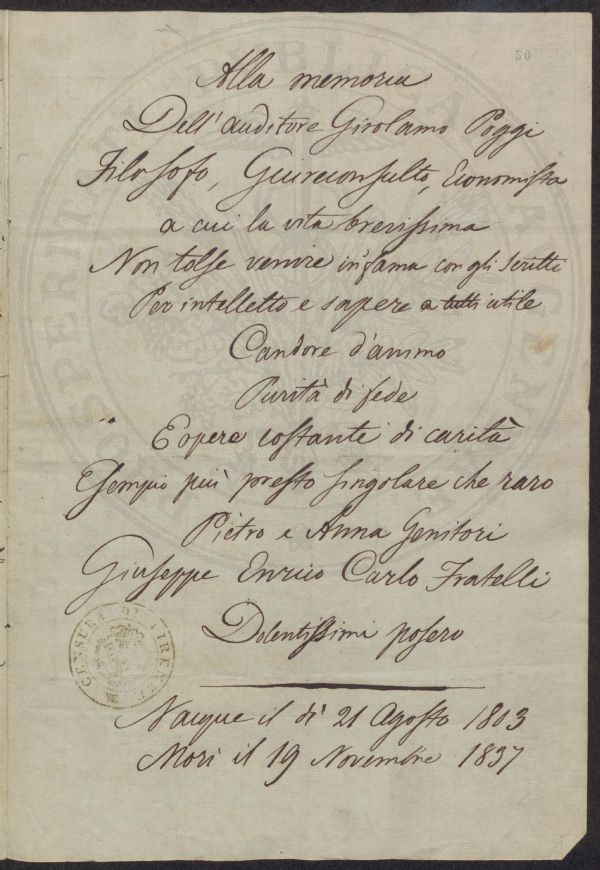 50
Alla memoria
Dell' auditore Girolamo Poggi
Filosofo, Giureconsulto, Economista
a cui la vita brevissima
Non tolse venire in fama con gli scritti
Per intelletto e sapere a tutti utile
Candore d'animo
Purità di fede
E opere costante di carità
Esempio più presto singolare che raro
Pietro e Anna Genitori
Giuseppe Enrico Carlo Fratelli
Dolentissimi posero
CENSURA DI FIRENZE
Nacque il dì 21 Agosto 1803
Morì il 19 Novembre 1837